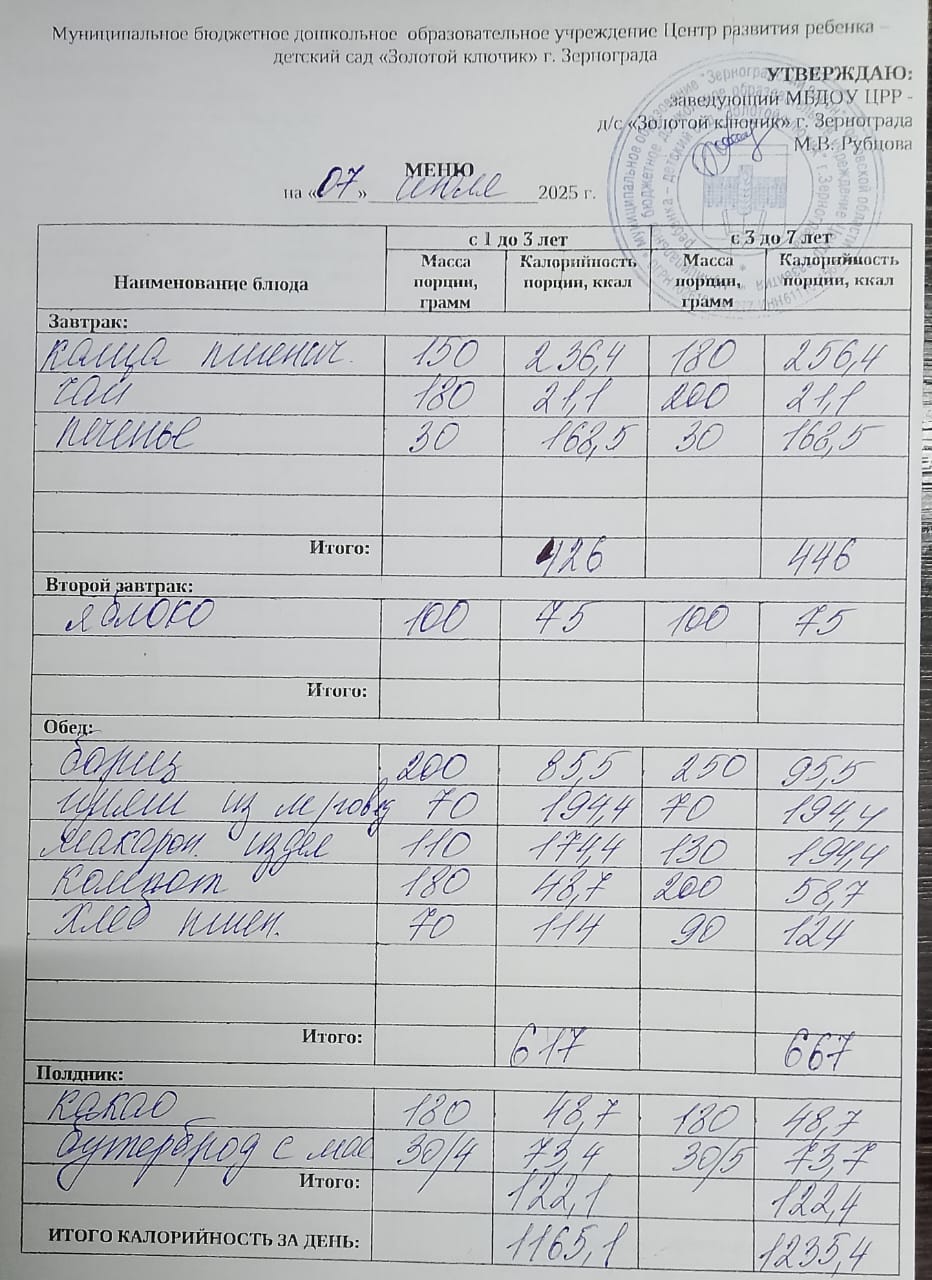 Муниципальное бюджетное дошкольное образовательное учреждение Центр развития ребенка –
детский сад «Золотой ключик» г. Зернограда
УТВЕРЖДАЮ:
заведующий МБДОУ ЦРР -
д/с «Золотой ключик» г. Зернограда
М.В. Рубцова
МЕНЮ
на «07» июля 2025 г.
Наименование блюда с 1 до 3 лет с 3 до 7 лет
Масса порции, грамм Калорийность порции, ккал Масса порции, грамм Калорийность порции, ккал
Завтрак:
каша пшенич. 150 236,4 180 256,4
чай 180 21,1 200 21,1
печенье 30 168,5 30 168,5
Итого: 426 446
Второй завтрак:
яблоко 100 75 100 75
Итого:
Обед:
борщ 200 85,5 250 95,5
из 70 194,4 70 194,4
макарон. издел 110 174,4 130 194,4
компот 180 48,7 200 58,7
хлеб пшен. 70 114 90 124
Итого: 617 667
Полдник:
какао 180 48,7 180 48,7
бутерброд с мас 30/4 73,4 30/5 73,7
Итого: 122,1 122,4
ИТОГО КАЛОРИЙНОСТЬ ЗА ДЕНЬ: 1165,1 1235,4